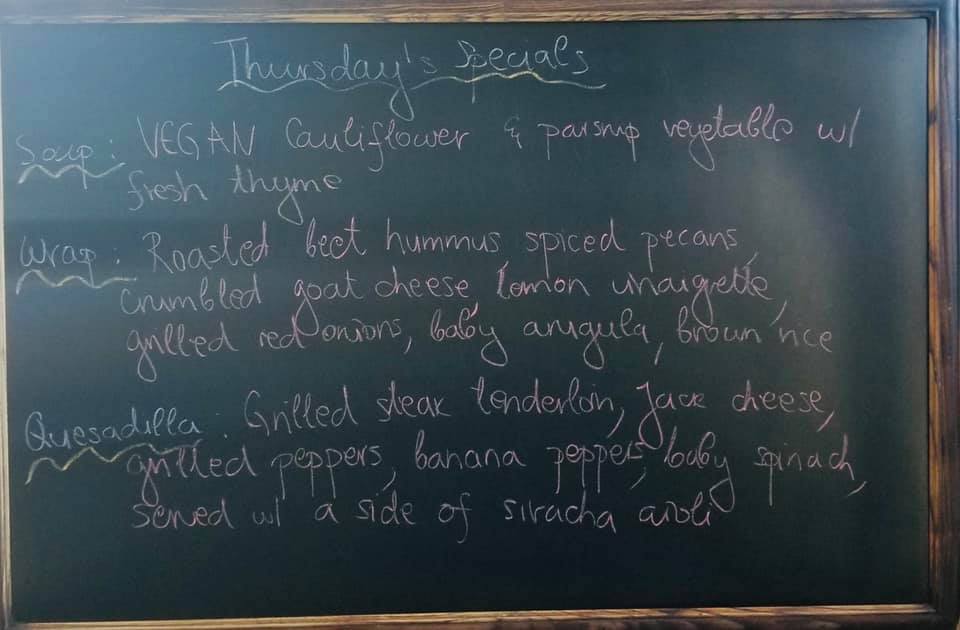 Thursday's Specials
Soup: VEGAN Cauliflower & parsnip vegetable w/
fresh thyme
Wrap: Roasted beet hummus, spiced pecans,
crumbled goat cheese, lemon vinaigrette,
grilled red onions, baby arugula, brown rice
Quesadilla: Grilled steak tenderloin, Jack cheese,
grilled peppers, banana peppers, baby spinach,
served w/ a side of siracha aioli